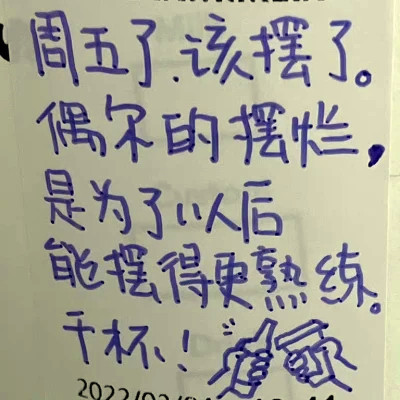 周五了、该摆了。
偶尔的摆烂，
是为了以后
能摆得更熟练。
干杯！